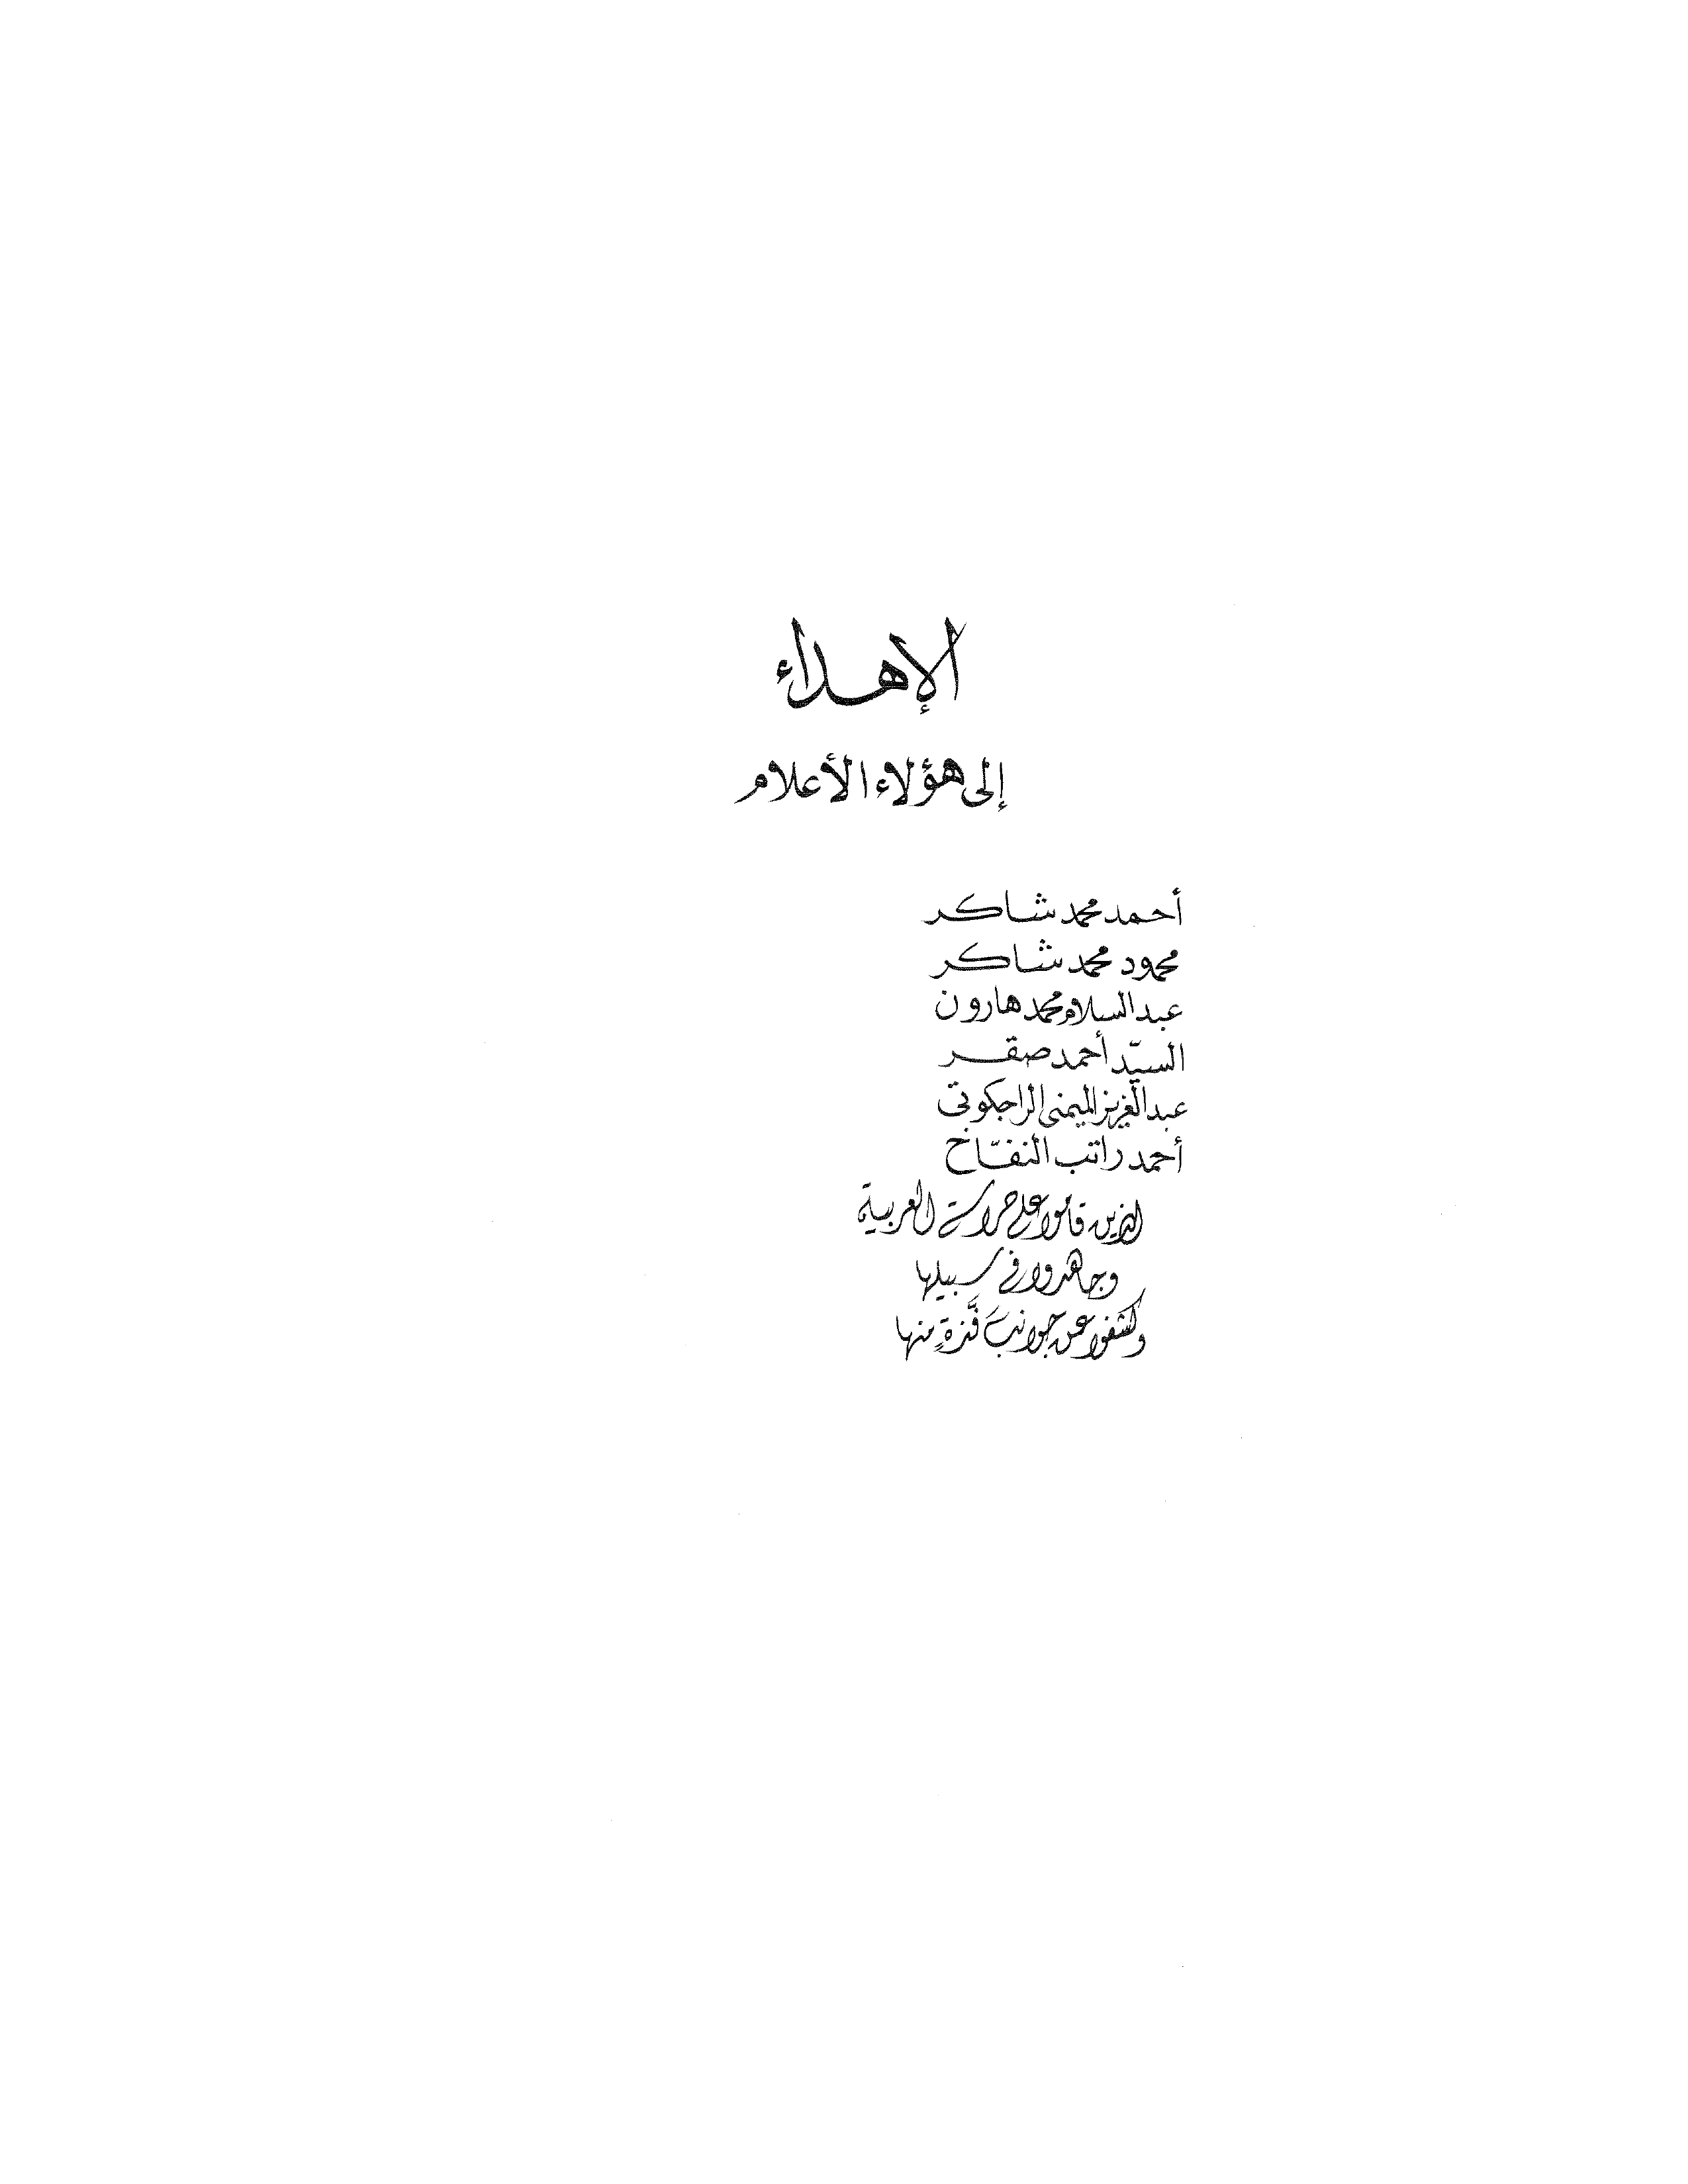 الإهداء
إلى هؤلاء الأعلام
أحمد محمد شاكر
محمود محمد شاكر
عبد السلام محمد هارون
السيّد أحمد صقر
عبد العزيز الميمنى الراجكوتى
أحمد راتب النفّاخ
الذين قاموا على حراسة العربية
وجاهدوا فى سبيلها
وكشفوا عن جوانبَ فَذَّةٍ منها